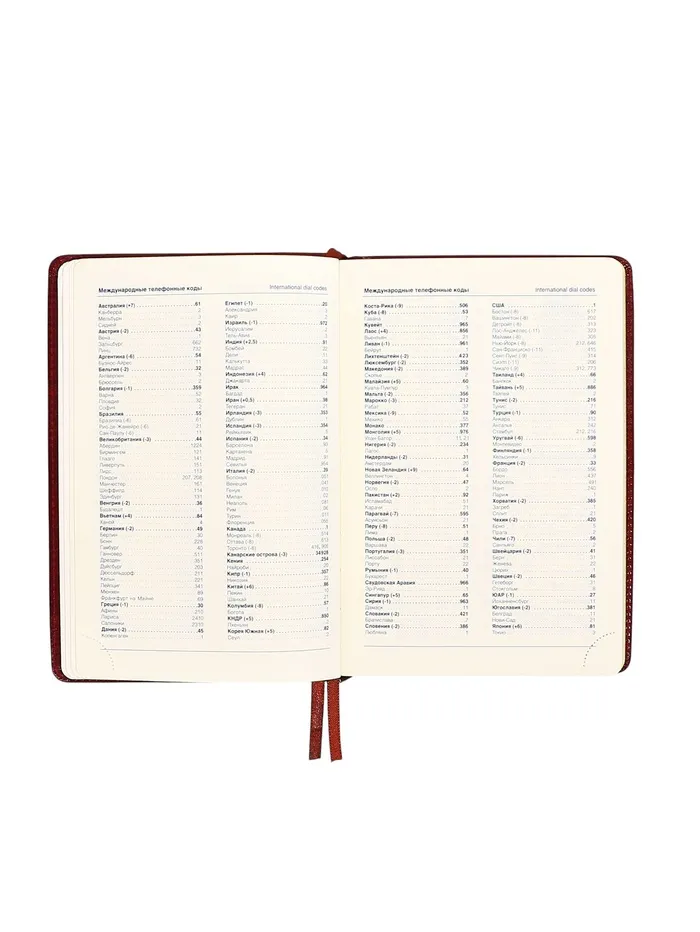 Международные телефонные коды
International dial codes
Австралия (+7) 61
Канберра 2
Мельбурн 3
Сидней 2
Австрия (-2) 43
Вена 1
Зальцбург 662
Линц 732
Аргентина (-6) 54
Буэнос-Айрес 11
Бельгия (-2) 32
Антверпен 3
Брюссель 2
Болгария (-1) 359
Варна 52
Пловдив 32
София 2
Бразилия 55
Бразилиа (-6) 61
Рио де Жанейро (-6) 21
Сан-Пауло (-6) 11
Великобритания (-3) 44
Абердин 1224
Бирмингем 121
Глазго 141
Ливерпуль 151
Лидс 113
Лондон 207, 208
Манчестер 161
Шеффилд 114
Эдинбург 131
Венгрия (-2) 36
Будапешт 1
Вьетнам (+4) 84
Ханой 4
Германия (-2) 49
Берлин 30
Бонн 228
Гамбург 40
Ганновер 511
Дрезден 351
Дуйсбург 203
Дюссельдорф 211
Кельн 221
Лейпциг 341
Мюнхен 89
Франкфурт на Майне 69
Греция (-1) 30
Афины 210
Лариса 2410
Салоники 2310
Дания (-2) 45
Копенгаген 1
Египет (-1) 20
Александрия 3
Каир 2
Израиль (-1) 972
Иерусалим 2
Тель-Авив 3
Индия (+2,5) 91
Бомбей
Дели 11
Калькутта 33
Мадрас 44
Индонезия (+4) 62
Джакарта 21
Ирак 964
Багдад 1
Иран (+0,5) 98
Тегеран 21
Ирландия (-3) 353
Дублин 1
Исландия (-3) 354
Рейкьявик
Испания (-2) 34
Барселона
Картахена
Мадрид 91
Севилья
Италия (-2) 39
Болонья 051
Венеция 041
Генуя 010
Милан 02
Неаполь 081
Рим 06
Турин 011
Флоренция 055
Канада 1
Монреаль (-8) 514
Оттава (-8) 613
Торонто (-8)
Канарские острова (-3) 34928
Кения 254
Найроби 20
Кипр (-1) 357
Никозия 22
Китай (+5) 86
Пекин 10
Шанхай 21
Колумбия (-8) 57
Богота 1
КНДР (+5) 850
Пхеньян 2
Корея Южная (+5) 82
Сеул 2
Международные телефонные коды
International dial codes
Коста-Рика (-9) 506
Куба (-8) 53
Гавана 7
Кувейт 965
Лаос (+4) 856
Вьентьян 21
Ливан (-1) 961
Бейрут 1
Лихтенштейн (-2) 423
Люксембург (-2) 352
Македония (-2) 389
Скопье 2
Малайзия (+5) 60
Куала-Лумпур 3
Мальта (-2) 356
Марокко (-3) 212
Рабат
Мексика (-9) 52
Мехико 55
Монако 377
Монголия (+5) 976
Улан-Батор 11, 21
Нигерия (-2) 234
Лагос 1
Нидерланды (-2) 31
Амстердам 20
Новая Зеландия (+9) 64
Веллингтон 4
Норвегия (-2) 47
Осло 2
Пакистан (+2) 92
Исламабад 51
Карачи 21
Парагвай (-7) 595
Асунсьон 21
Перу (-8) 51
Лима 1
Польша (-2) 48
Варшава 22
Португалия (-3) 351
Лиссабон 21
Порту 22
Румыния (-1) 40
Бухарест 1
Саудовская Аравия 966
Эр-Рияд 1
Сингапур (+5) 65
Сирия (-1) 963
Дамаск 11
Словакия (-2) 421
Братислава 7
Словения (-2) 386
Любляна 1
США 1
Бостон (-8) 617
Вашингтон (-8) 202
Детройт (-8) 313
Лос-Анджелес (-11) 323
Майами (-8) 305
Нью-Йорк (-8) 212, 646
Сан-Франциско (-11) 415
Сент-Луис (-9) 314
Сиэтл (-11) 206
Чикаго (-9) 312, 773
Таиланд (+4) 66
Бангкок 2
Тайвань (+5) 886
Тайпей 2
Тунис (-2) 216
Тунис 1
Турция (-1) 90
Анкара 312
Анталья 242
Стамбул 212, 216
Уругвай (-6) 598
Монтевидео 2
Финляндия (-1) 358
Хельсинки 9
Франция (-2) 33
Бордо 556
Лион 437
Марсель 491
Нант 240
Париж 1
Хорватия (-2) 385
Загреб 1
Сплит 21
Чехия (-2) 420
Брно 5
Прага 2
Чили (-7) 56
Сантьяго 2
Швейцария (-2) 41
Берн 31
Женева 22
Цюрих 1
Швеция (-2) 46
Гетеборг 31
Стокгольм 8
ЮАР (-1) 27
Йоханнесбург 11
Югославия (-2) 381
Белград 11
Нови-Сад 21
Япония (+6) 81
Токио 3